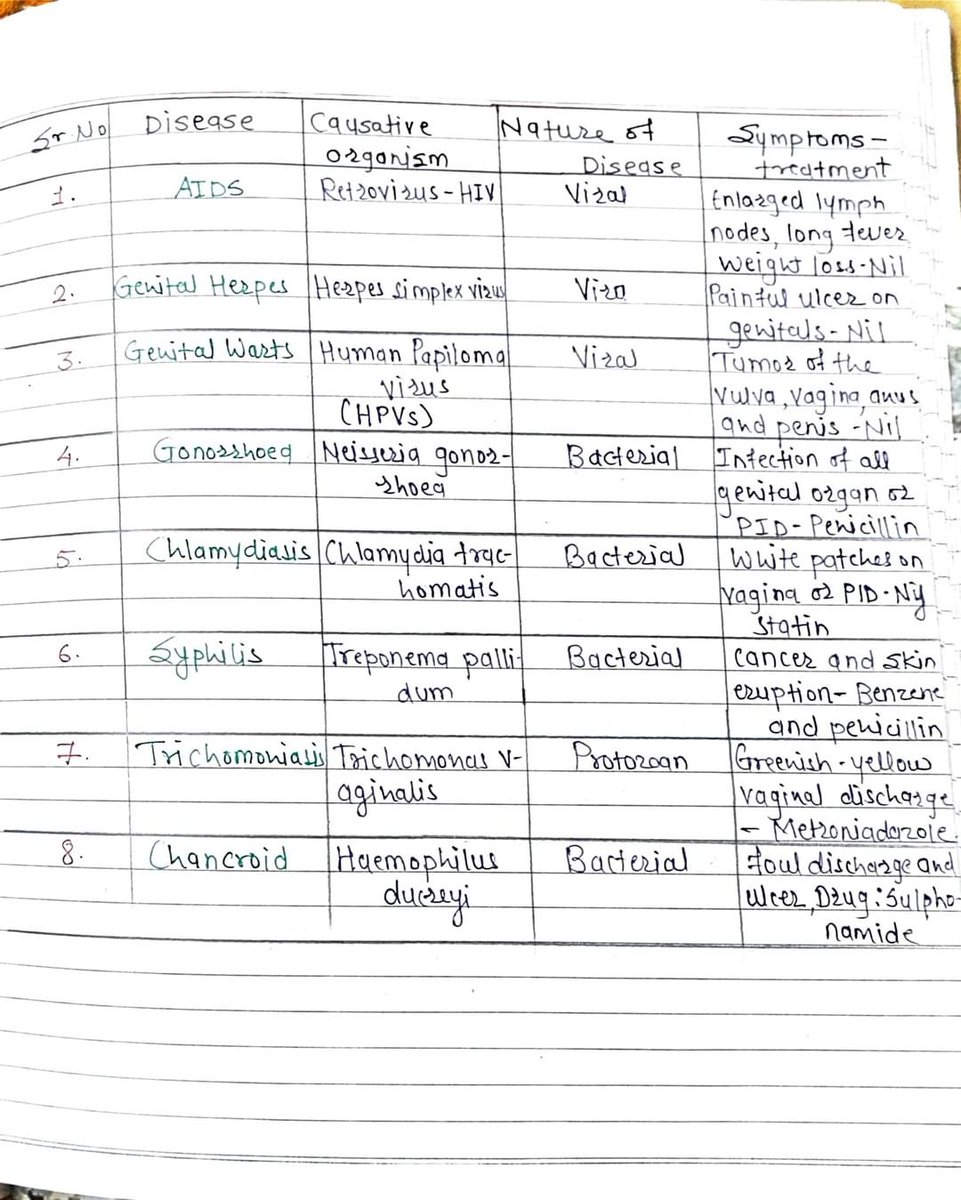 Sr No Disease Causative organism Nature of Disease Symptoms - treatment
1. AIDS Retrovirus - HIV Viral Enlarged lymph nodes, long fever weight loss - Nil
2. Genital Herpes Herpes simplex virus Vira Painful ulcer on genitals - Nil
3. Genital Warts Human Papiloma virus (HPVs) Viral Tumor of the vulva, vagina, anus and penis - Nil
4. Gonorrhoea Neisseria gonor-rhoea Bacterial Infection of all genital organ or PID - Penicillin
5. Chlamydiasis Chlamydia trac-homatis Bacterial White patches on vagina or PID - Ny statin
6. Syphilis Treponema palli-dum Bacterial Cancer and skin eruption - Benzene and penicillin
7. Trichomoniasis Trichomonas v-aginalis Protozoan Greenish - yellow vaginal discharge - Metroniadazole.
8. Chancroid Haemophilus ducreyi Bacterial Foul discharge and ulcer, Drug : Sulpho-namide